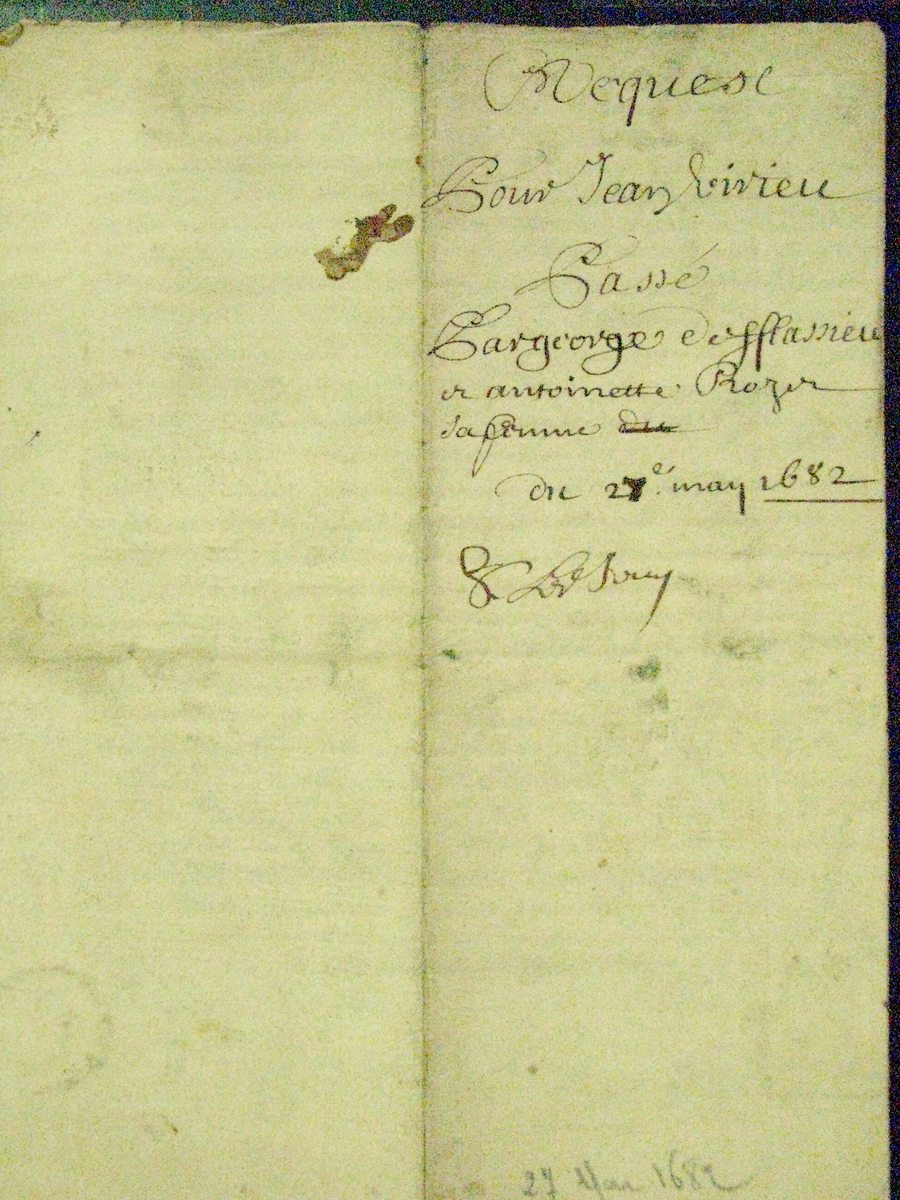 Request
Pour Jean Virieu
Passé
Par george desfflassieu
et antoinette Rozet
sa femme
du 27e may 1682
27 Mai 1682